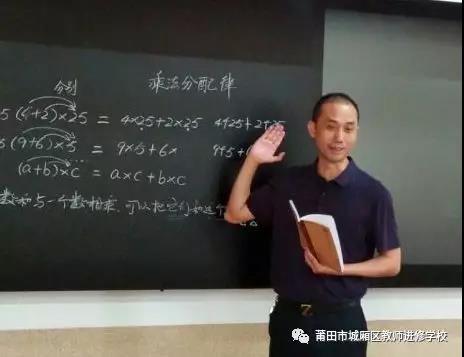 分别 乘法分配律
5 (4+2)×25 = 4×25+2×25 4+25+2+25
(9+6)×5 = 9×5+6× 9+5+
(a+b)×c = a×c+b×c
数的和与一个数相乘，可以把它们和这个
莆田市城厢区教师进修学校